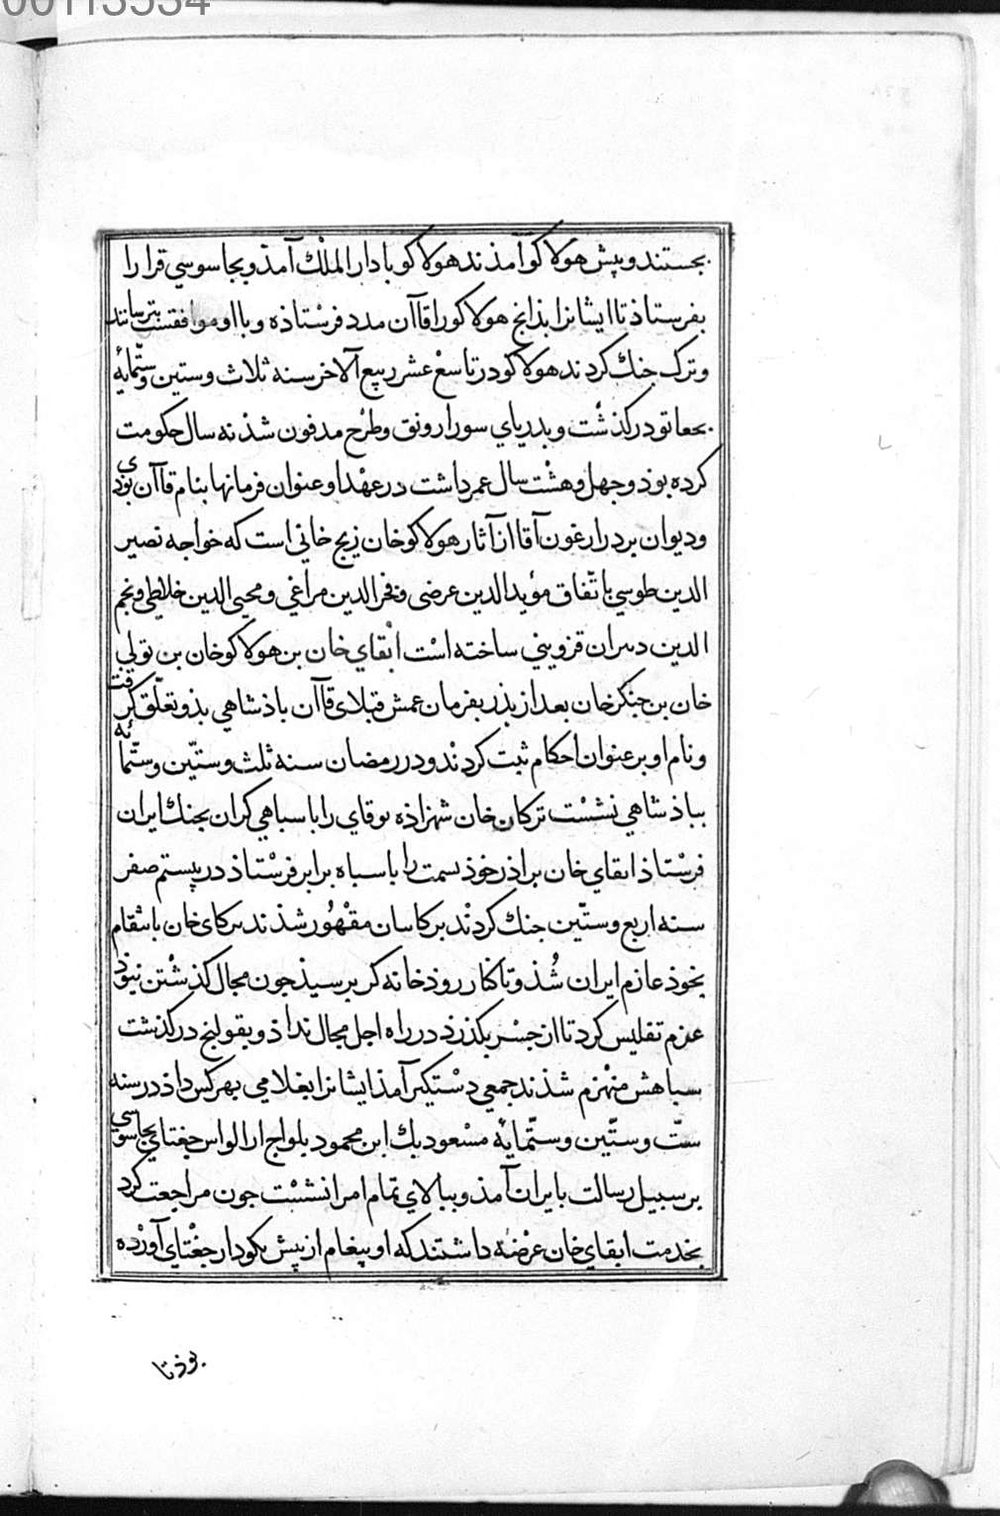 00113534
بجستند و پیش هولاکو آمذند هولاکو با دار الملْك آمذ و بجاسوسي قرا را
بفرستاذ تا ایشانرا بذانچ هولاکو را قاآن مدد فرستاذه و با او موافقتست بترسانند
وترك جنك کردند هولاکو در تاسع عشر ربیع آلاخر سنه ثلاث وستین وستّمایهٔ
بجغاتو درکذشت و بدریاي سور ارونق و طرُح مدفون شذ نه سال حکومت
کرده بوذ و جهل و هشْت سال عمر داشت در عهْد او عنوان فرمانها بنام قاآن بوذی
ودیوان بردر ارغون آقا از آثار هولاکو خان زیج خاني است که خواجه نصیر
الدین طوسي باتّفاق مؤید الدین عرضی و فخر الدین مراغي و محیی الدین خلاطي و نجم
الدین دبیران قزویني ساخته اسْت ابْقاي خان بن هولاکو خان بن تولی
خان بن جنکز خان بعد از بذر بفرمان عمش قبلای قاآن باذشاهي بذو تعلّق کرفت
و نام او بر عنوان احکام ثبت کردنْد و در رمضان سنه ثلث وستّین وستّمائه
بباذشاهي نشسْت ترکان خان شهزاذه نوقاي را با سباهي کران بجنك ایران
فرسْتاذ ابقاي خان براذر خوذ یسمت را با سباه برابر فرسْتاذ در بیستم صفر
سنه اربع وستّین جنك کردنْد برکاییان مقْهُور شذند برکای خان بانتقام
بخوذ عازم ایران شُذ و تا کنار روذخانه کر برسیذ جون مجال کذشْتن نبوذ
عزم تفلیس کرد تا از جسْر بکذرذ در راه اجل مجال نداذ و بقولنج درکذشت
سباهش منْهزم شذند جمعي دسْتکیر آمذ ایشانرا بغلامي بهرکس داذ در سنه
ستّ وستّین وستّمایهٔ مسْعود بك ابن محمود یلواج از الواس جغتاي بجاسوسي
بر سبیل رسالت بایران آمذ و ببالاي تمام امرا نشسْت جون مراجعت کرد
بخدمت ابقاي خان عرْضه داشتند که او پیغام از پیش نکودار جغْتاي آورْده
بوذ تا